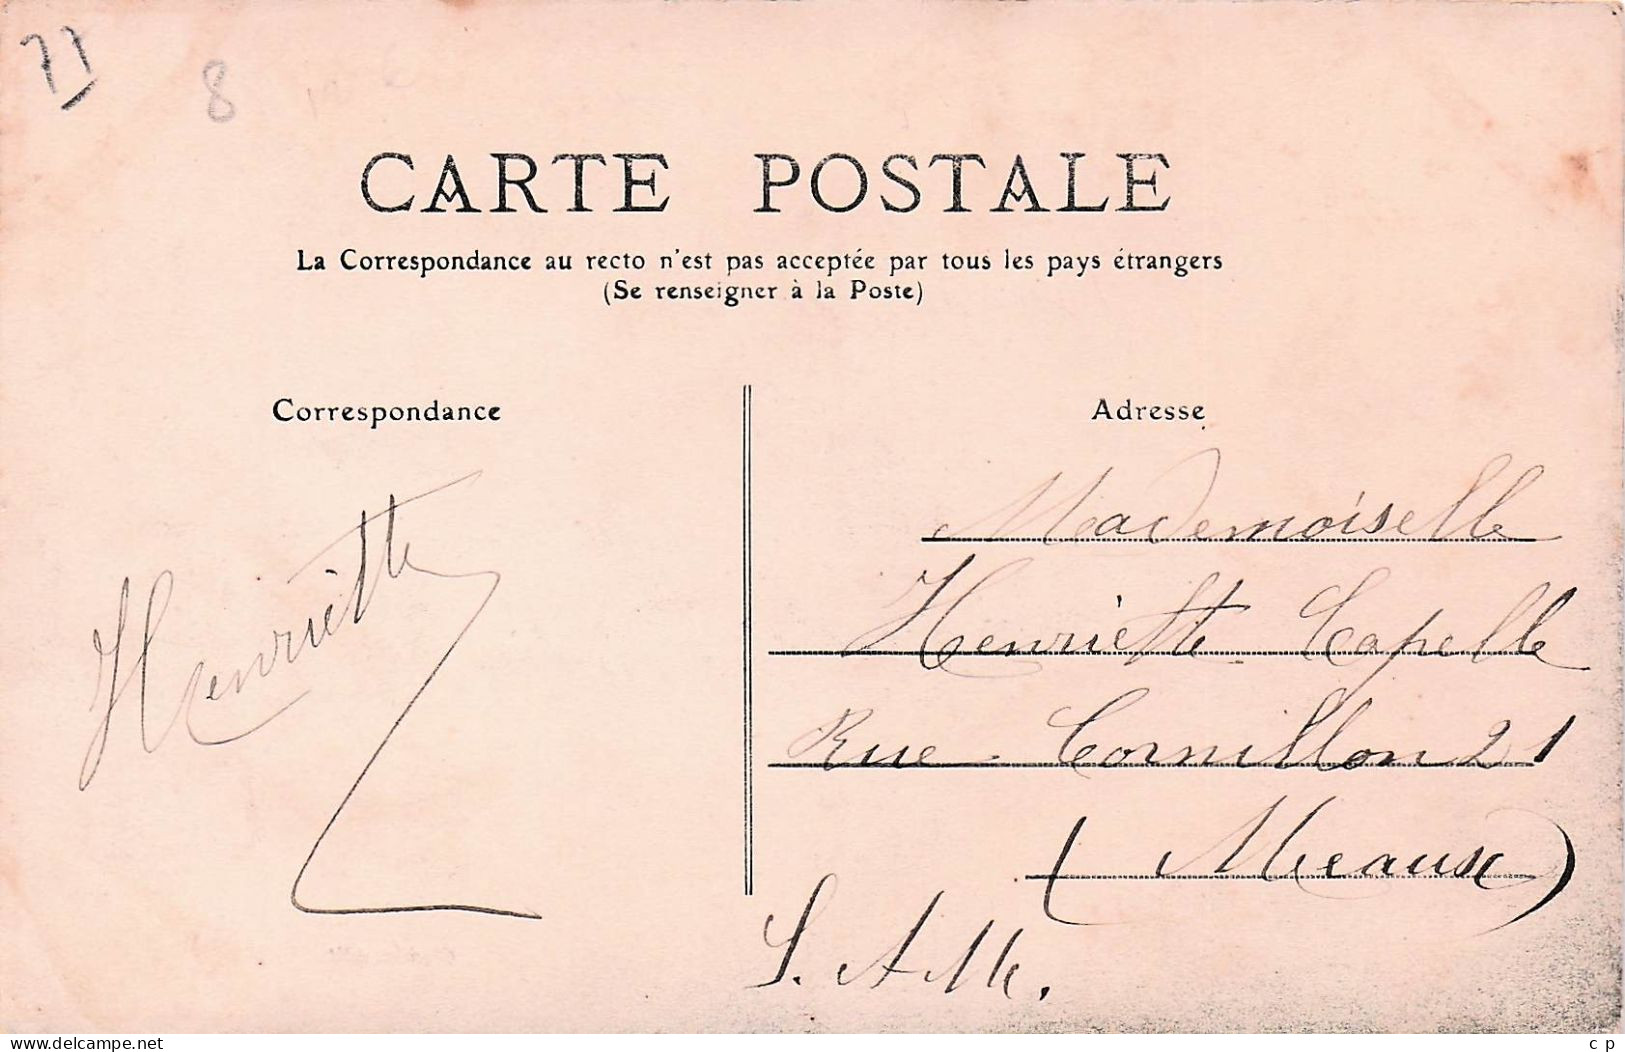 77
8
CARTE POSTALE
La Correspondance au recto n'est pas acceptée par tous les pays étrangers
(Se renseigner à la Poste)
Correspondance
Adresse
Henriette
Mademoiselle
Henriette Capelle
Rue Cornillon 21
(Meaux)
S. et M.
website : www.delcampe.net
c p